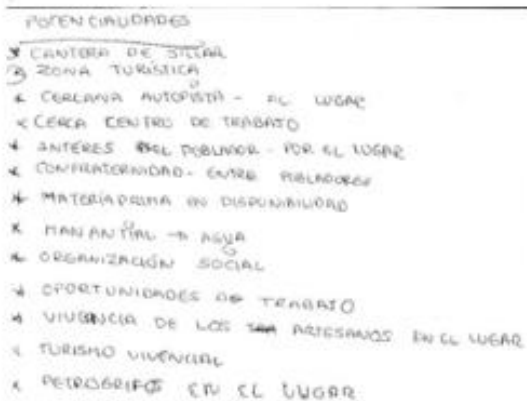 POTENCIALIDADES
* CANTERA DE SILLAR
* ZONA TURÍSTICA
* CERCANA AUTOPISTA - AL LUGAR
* CERCA CENTRO DE TRABAJO
* INTERES DEL POBLADOR - POR EL LUGAR
* CONFRATERNIDAD - ENTRE POBLADORES
* MATERIA PRIMA EN DISPONIBILIDAD
* MANANTIAL → AGUA
* ORGANIZACIÓN SOCIAL
* OPORTUNIDADES DE TRABAJO
* VIVENCIA DE LOS ARTESANOS EN EL LUGAR
* TURISMO VIVENCIAL
* PETROGRIFOS EN EL LUGAR